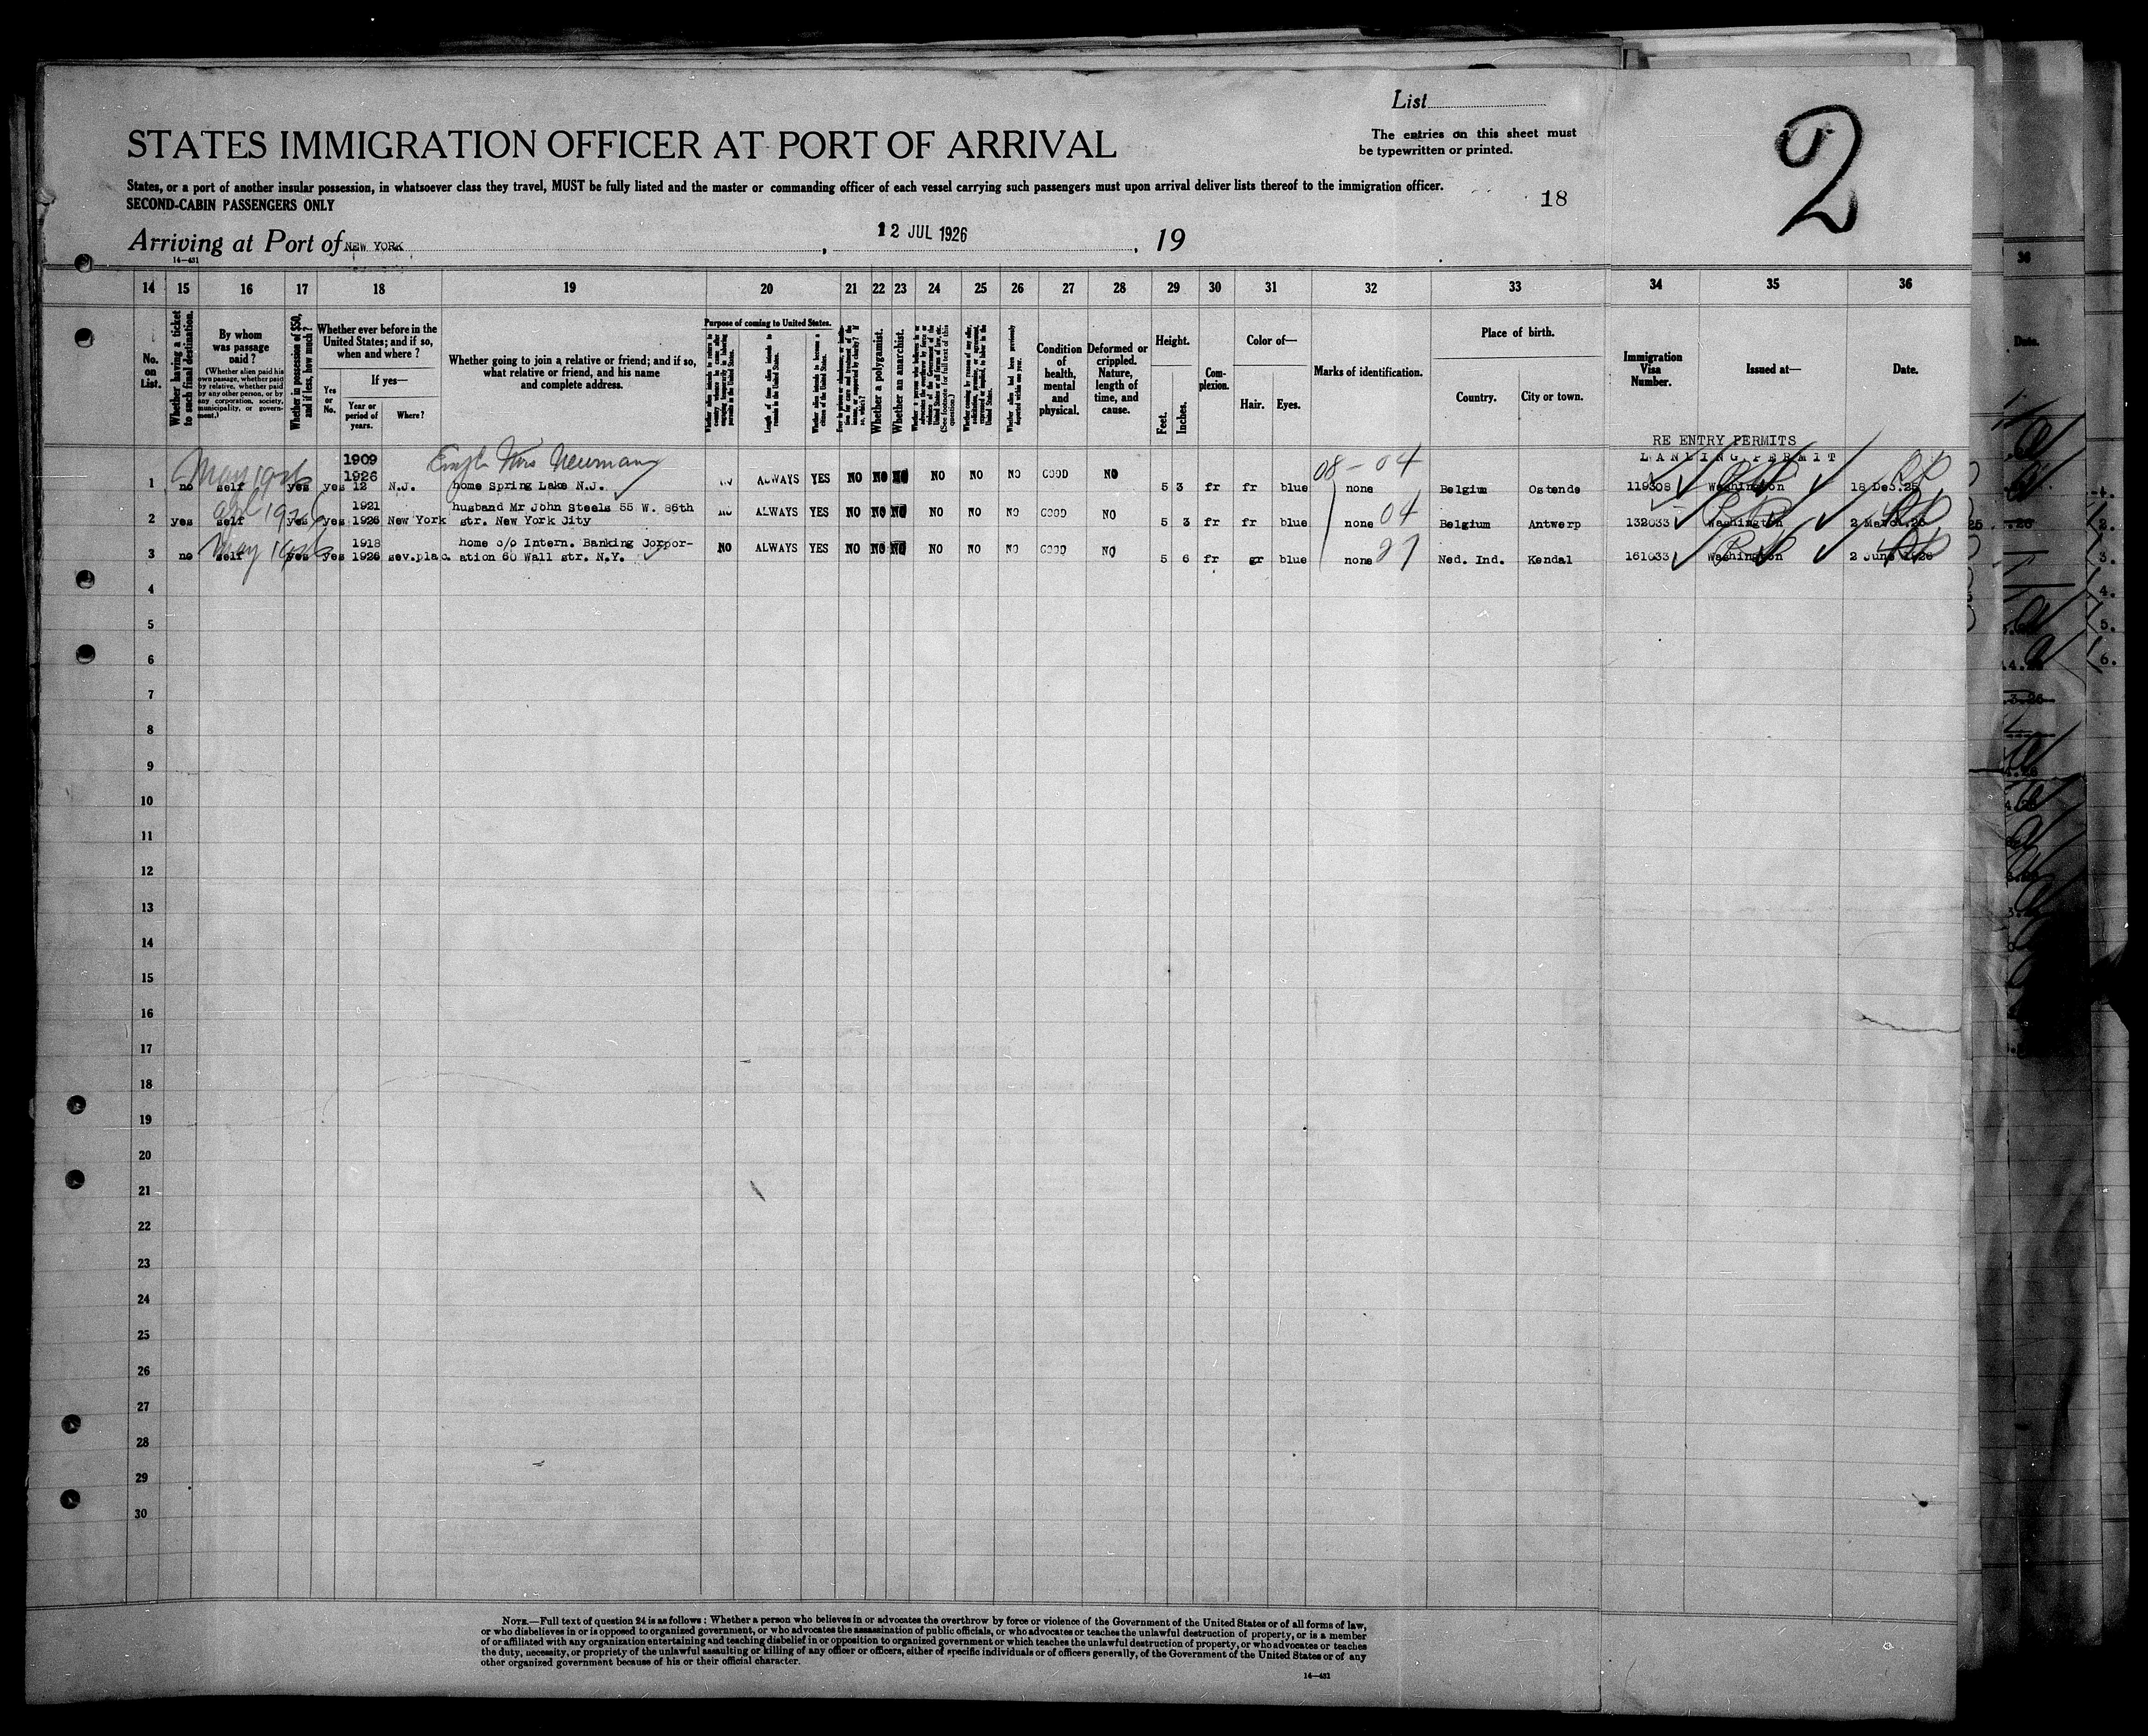 List
STATES IMMIGRATION OFFICER AT PORT OF ARRIVAL
The entries on this sheet must
be typewritten or printed.
2
States, or a port of another insular possession, in whatsoever class they travel, MUST be fully listed and the master or commanding officer of each vessel carrying such passengers must upon arrival deliver lists thereof to the immigration officer.
SECOND-CABIN PASSENGERS ONLY
18
Arriving at Port of NEW YORK, 12 JUL 1926, 19
14—431
14 15 16 17 18 19 20 21 22 23 24 25 26 27 28 29 30 31 32 33 34 35 36
No. on List.
Whether having a ticket to such final destination.
By whom was passage paid?
(Whether alien paid his own passage, whether paid by relative, whether paid by any other person, or by any corporation, society, municipality, or government.)
Whether in possession of $50, and if less, how much?
Whether ever before in the United States; and if so, when and where?
Yes or No.
If yes—
Year or period of years.
Where?
Whether going to join a relative or friend; and if so, what relative or friend, and his name and complete address.
Purpose of coming to United States.
Length of time alien intends to remain in the United States.
Whether alien intends to become a citizen of the United States.
Whether a polygamist.
Whether an anarchist.
Whether alien had been previously deported within one year.
Condition of health, mental and physical.
Deformed or crippled. Nature, length of time, and cause.
Height.
Feet.
Inches.
Complexion.
Color of—
Hair.
Eyes.
Marks of identification.
Place of birth.
Country.
City or town.
Immigration Visa Number.
Issued at—
Date.
RE ENTRY PERMITS
LANDING PERMIT
May 1926 1909 Mrs Neumann 08-04
1926
1 no self yes yes 12 N.J. home Spring Lake N.J. NO ALWAYS YES NO NO NO NO NO NO GOOD NO 5 3 fr fr blue none Belgium Ostende 119308 Washington 18 Dec.25
1921 husband Mr John Steels 55 W. 86th
2 yes self yes yes 1926 New York str. New York City NO ALWAYS YES NO NO NO NO NO NO GOOD NO 5 3 fr fr blue none 04 Belgium Antwerp 132033 Washington 2 March.26
May 1926 1918 home c/o Intern. Banking Corpor-
3 no self yes yes 1926 sev.plac. ation 60 Wall str. N.Y. NO ALWAYS YES NO NO NO NO NO NO GOOD NO 5 6 fr gr blue none 27 Ned. Ind. Kendal 161033 Washington 2 June 1926
4
5
6
7
8
9
10
11
12
13
14
15
16
17
18
19
20
21
22
23
24
25
26
27
28
29
30
NOTE.—Full text of question 24 is as follows: Whether a person who believes in or advocates the overthrow by force or violence of the Government of the United States or of all forms of law,
or who disbelieves in or is opposed to organized government, or who advocates the assassination of public officials, or who advocates or teaches the unlawful destruction of property, or is a member
of or affiliated with any organization entertaining and teaching disbelief in or opposition to organized government or which teaches the unlawful destruction of property, or who advocates or teaches
the duty, necessity, or propriety of the unlawful assaulting or killing of any officer or officers, either of specific individuals or of officers generally, of the Government of the United States or of any
other organized government because of his or their official character.
14—431